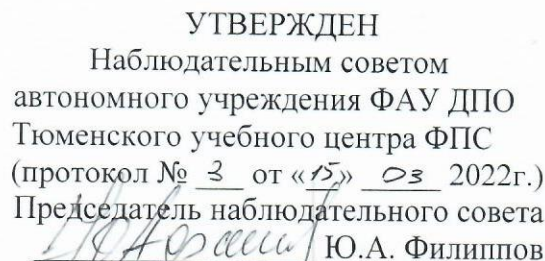 УТВЕРЖДЕН
Наблюдательным советом
автономного учреждения ФАУ ДПО
Тюменского учебного центра ФПС
(протокол № 3 от «15» 03 2022г.)
Председатель наблюдательного совета
Ю.А. Филиппов